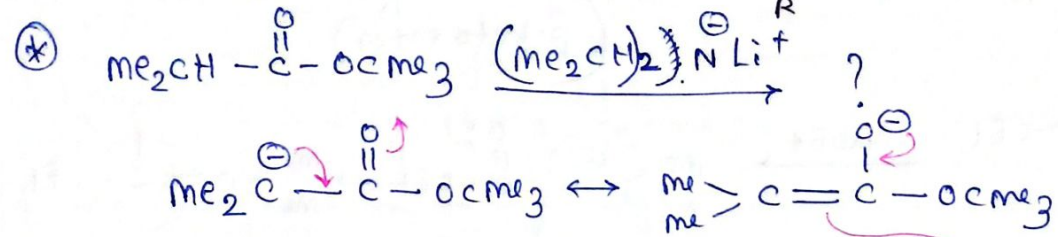 R
⊛ Me₂CH – C(=O) – OCMe₃ (Me₂CH)₂ N⊖ Li⁺ → ?
Me₂C⊖ – C(=O) – OCMe₃ ↔ Me Me > C = C(–O⊖) – OCMe₃